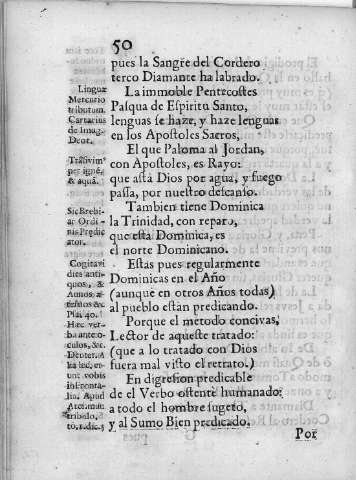 50
pues la Sangre del Cordero
terco Diamante ha labrado.
La immoble Pentecostes
Pasqua de Espiritu Santo,
lenguas se haze, y haze lenguas
en los Apostoles Sacros,
El que Paloma al Jordan,
con Apostoles, es Rayo:
que astá Dios por agua, y fuego
passa, por nuestro descanso.
Tambien tiene Dominica
la Trinidad, con reparo,
que esta Dominica, es
el norte Dominicano.
Estas pues regularmente
Dominicas en el Año
(aunque en otros Años todas)
al pueblo están predicando.
Porque el metodo concivas,
Lector de aqueste tratado:
(que a lo tratado con Dios
fuera mal visto el retrato.)
En digresion predicable
de el Verbo ostentè humanado;
a todo el hombre sugeto,
y al Sumo Bien predicado.
Por
Linguæ
Mercurio
tributum.
Cartarius
de Imag.
Deor.
Trãsivim⁹
per igné,
& aquã.
Sic Brebi-
ar. Ordi-
nis Prędic
ator.
Cogitavi
dies anti-
quos, &
Annos,
Psal. 40.
Hæc ver-
ba ante o-
culos, &c.
Deuter.